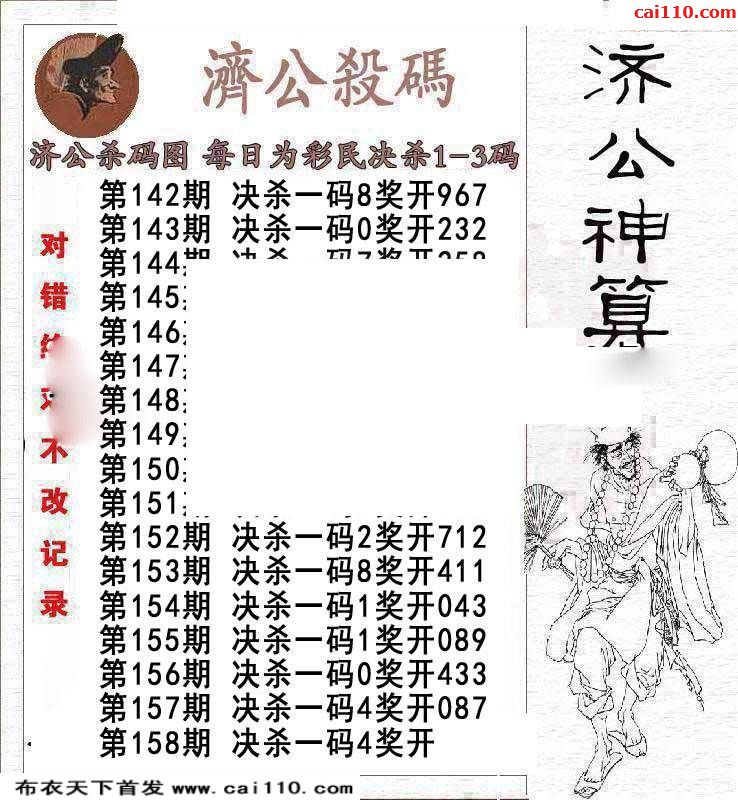 cai110.com
濟公殺碼
济公杀码图 每日为彩民决杀1-3码
第142期 决杀一码8奖开967
第143期 决杀一码0奖开232
第144期 决杀一码7奖开
第145
第146
第147
第148
第149
第150
第151
第152期 决杀一码2奖开712
第153期 决杀一码8奖开411
第154期 决杀一码1奖开043
第155期 决杀一码1奖开089
第156期 决杀一码0奖开433
第157期 决杀一码4奖开087
第158期 决杀一码4奖开
对错
不改记录
济公神算
布衣天下首发 www.cai110.com